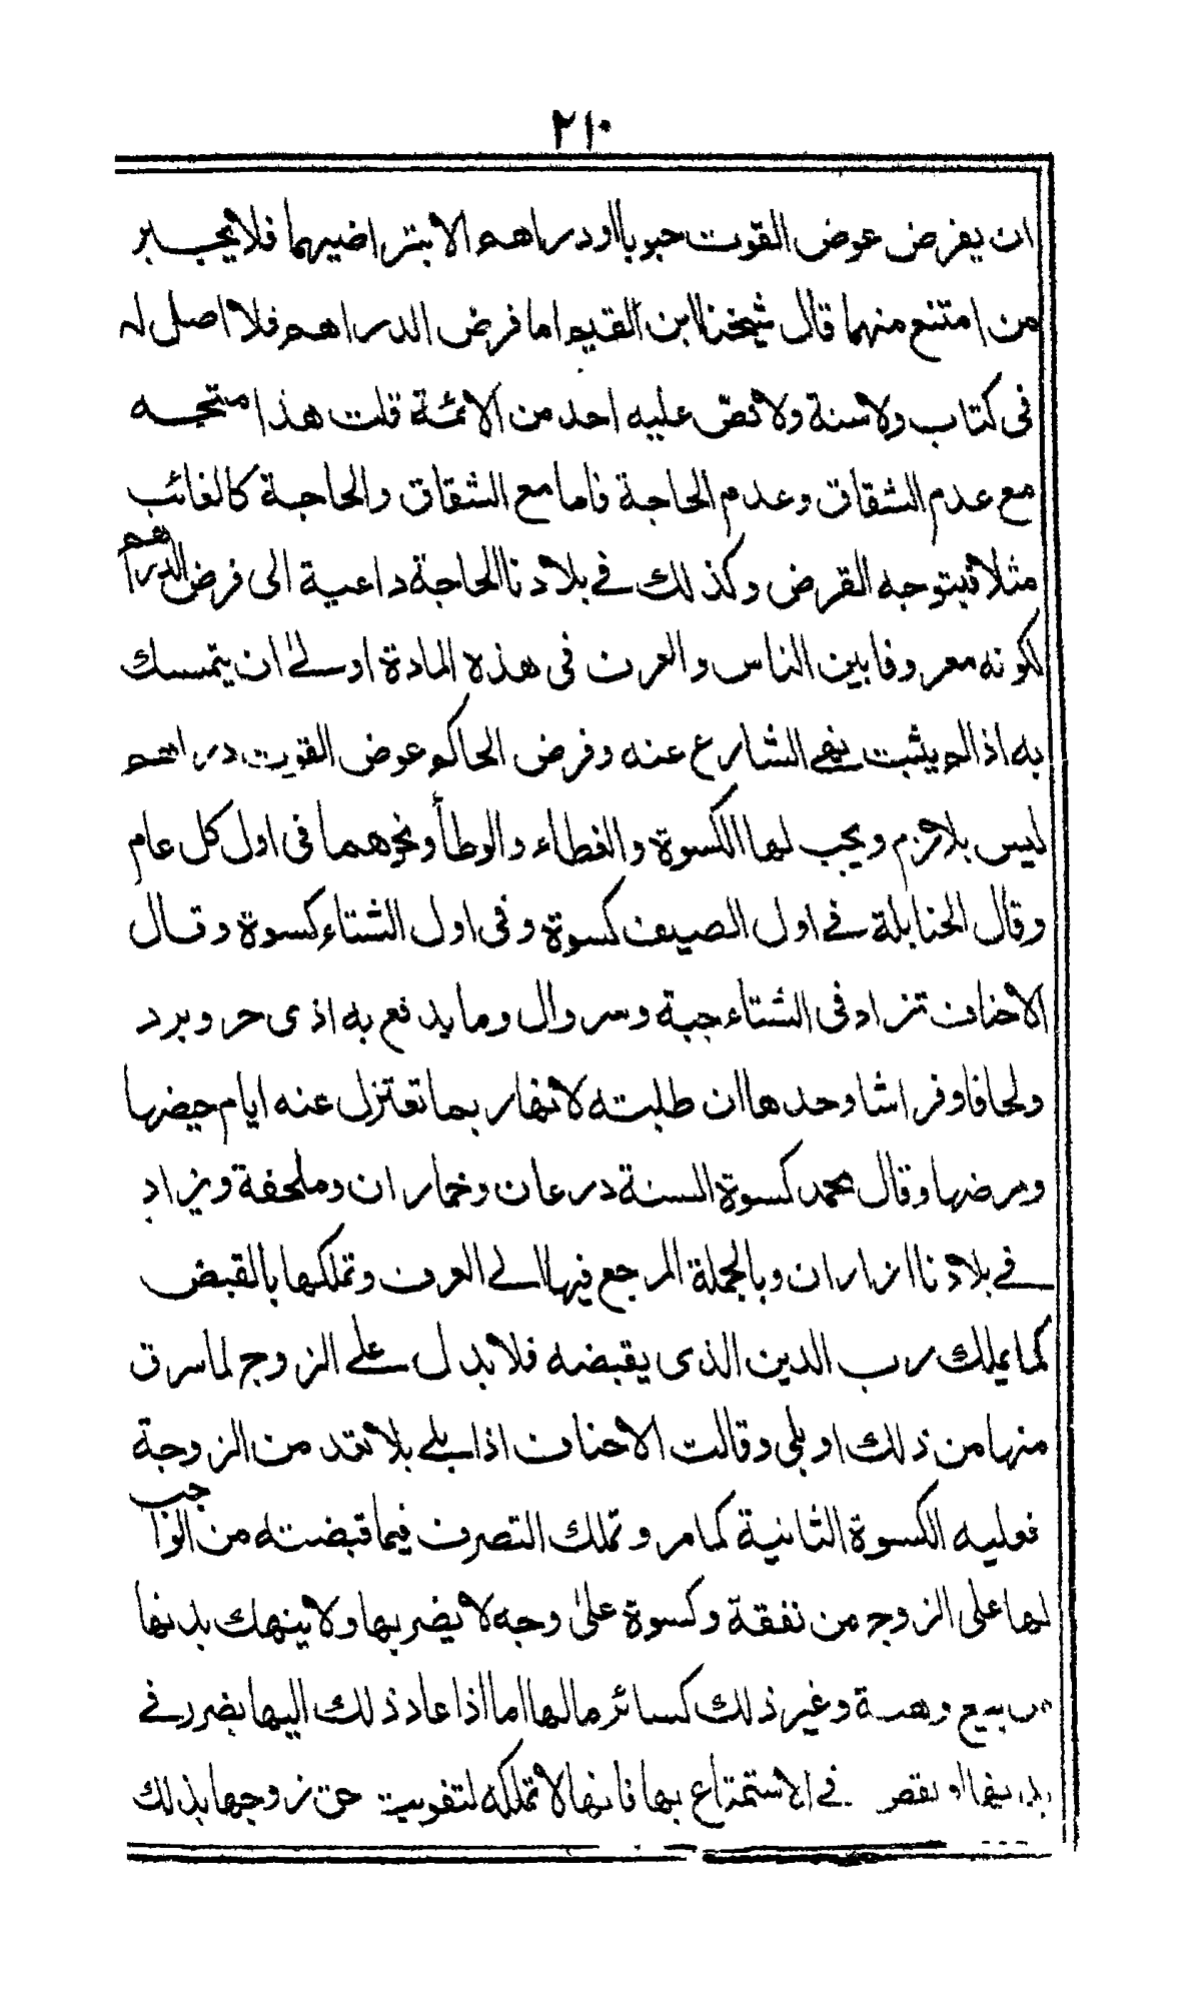 ٢١٠
ان يفرض عوض القوت حبوبا اودراهم الا بتراضيهما فلا يجبر
من امتنع منهما قال شيخنا ابن القيم اما فرض الدراهم فلا اصل له
فى كتاب ولا سنة ولا نص عليه احد من الائمة قلت هذا متجه
مع عدم الشقاق وعدم الحاجة فاما مع الشقاق والحاجة كالغائب
مثلا فيتوجه الفرض وكذلك في بلادنا الحاجة داعية الى فرض الدراهم
لكونه معروفا بين الناس والعرف فى هذه المادة اولى ان يتمسك
به اذ لم يثبت نهي الشارع عنه وفرض الحاكم عوض القوت دراهم
ليس بلازم ويجب لها الكسوة والغطاء والوطأ ونحوهما فى اول كل عام
وقال الحنابلة في اول الصيف كسوة وفى اول الشتاء كسوة وقال
الاحناف تزاد فى الشتاء جبة وسروال وما يدفع به اذى حر وبرد
ولحافا وفراشا وحدها ان طلبته لانها ربما تعتزل عنه ايام حيضها
ومرضها وقال محمد كسوة السنة درعان وخماران وملحفة ويزاد
في بلادنا ازاران وبالجملة المرجع فيها الى العرف وتملكها بالقبض
كما يملك رب الدين الذى يقبضه فلا بدل على الزوج لما سرق
منها من ذلك او بلى وقالت الاحناف اذا بلي بلا تعد من الزوجة
فعليه الكسوة الثانية كما مر وتملك التصرف فيما قبضته من الواجب
لها على الزوج من نفقة وكسوة على وجه لا يضر بها ولا ينهك بدنها
من بيع وهبة وغير ذلك كسائر مالها اما اذا عاد ذلك اليها بضرر في
بدنها او نقص في الاستمتاع بها فانها لا تملكه لتفويت حق زوجها بذلك